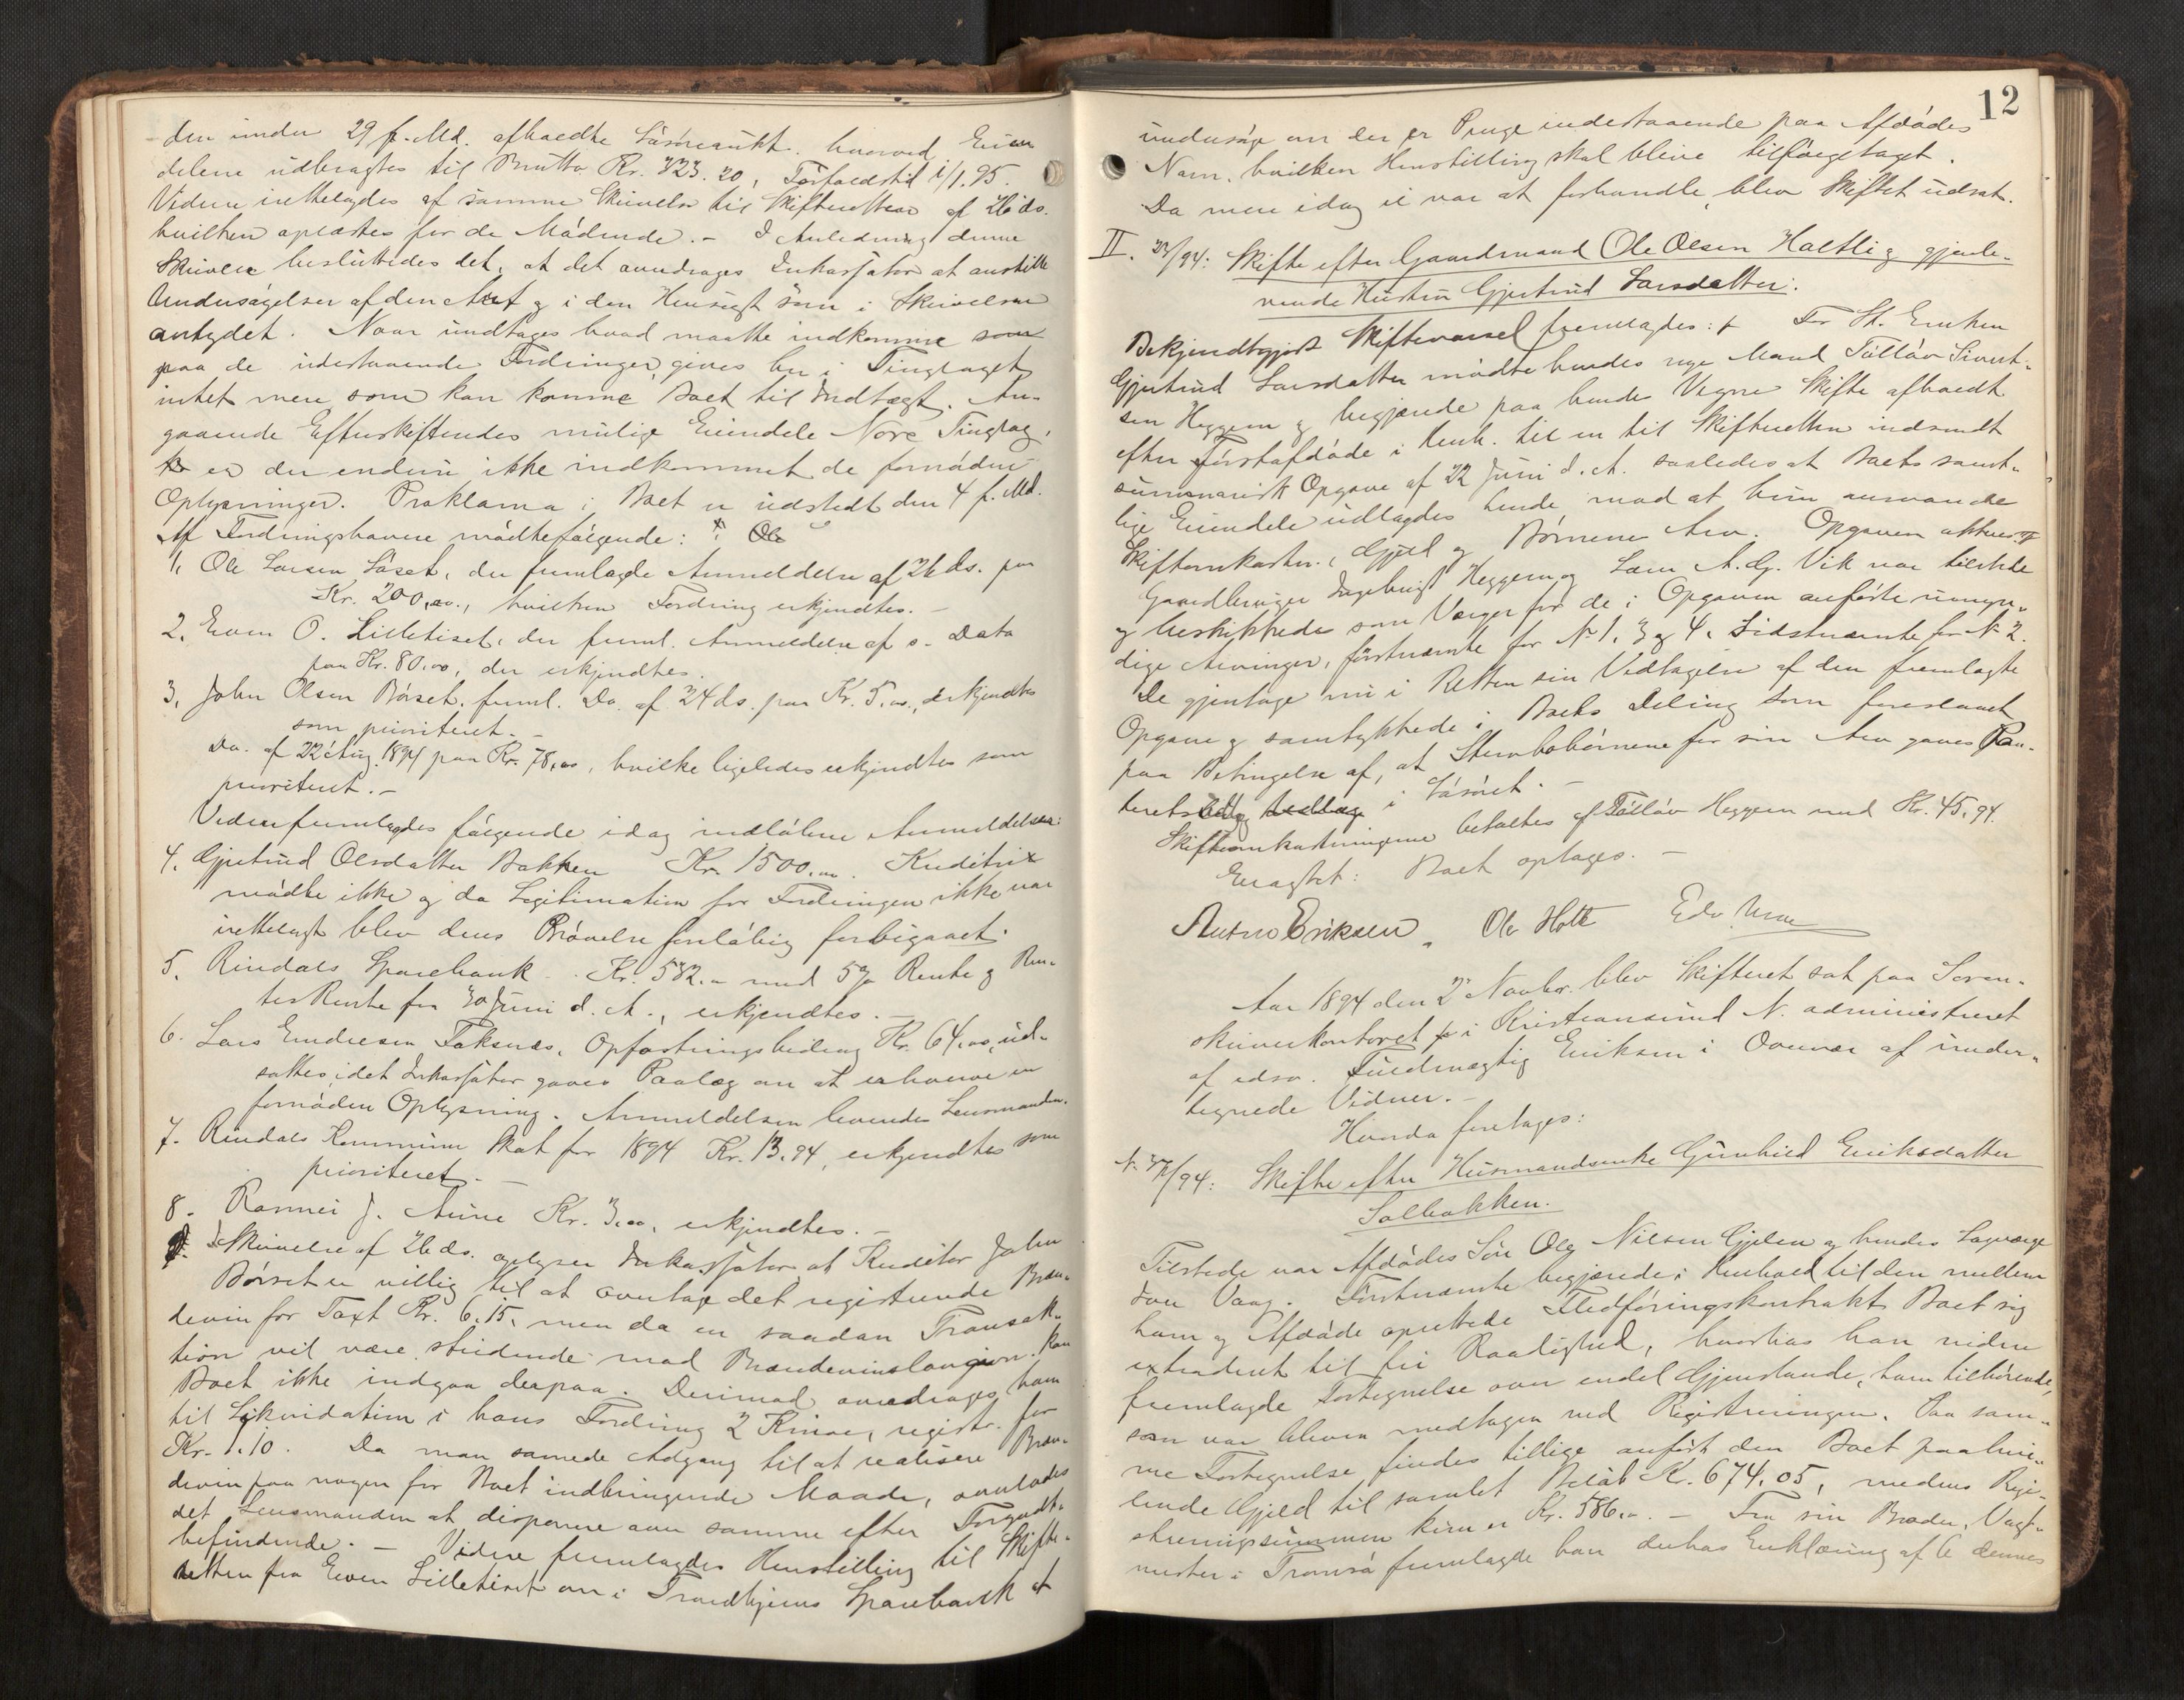 den under 29 f. Md. afholdte Løsøreaukt. hvorved Eien
delene udbragtes til Brutto Kr. 323.20, Forfaldstid 1/1.95.
Videre irettelagdes af samme Skrivelse til Skifteretten af 26 ds.
hvilken oplæstes for de Mødende. – I Anledning denne
Skrivelse besluttedes det, at det overdrages Inkassator at anstille
Undersøgelser af den Art og i den Hensigt som i Skrivelsen
antydet. Naar undtages hvad maatte indkomme som
paa de udestaaende Fordringer, gives her i Tinglaget
intet mere som kan komme Boet til Indtægt. An-
gaaende Efterskiftendes mulige Eiendele Nore Tinglag,
er der endnu ikke indkommet de fornødne
Oplysninger. Proklama i Boet er udstedt den 4 f. Md.
Af Fordringshavere mødte følgende:
1, Ole Larsen Løset, der fremlagde Anmeldelse af 26 ds. paa
Kr. 200,00, hvilken Fordring erkjendtes. –
2, Even O. Lilletiset, der freml. Anmeldelse af s. Dato
paa Kr. 80.00, der erkjendtes.
3, John Olsen Børset, freml. Do. af 24 ds. paa Kr. 5.00, erkjendtes
som prioriteret. –
Do. af 22 Aug. 1894 paa Kr. 78,00, hvilke ligeledes erkjendtes som
prioriteret. –
Videre fremlagdes følgende idag indløbne Anmeldelser:
4. Gjertrud Olsdatter Bakken Kr. 1500.00. Kreditrix
mødte ikke og da Legitimation for Fordringen ikke var
irettelagt blev dens Prøvelse foreløbig forbigaaet.
5. Rindals Sparebank Kr. 582.– med 5% Rente og Ren-
tes Rente fra 30 Juni d. A., erkjendtes. –
6. Lars Endresen Foksnes, Opfostringsbidrag Kr. 64.00, ud-
sattes, idet Inkassator gaves Paalæg om at erhverve en
fornøden Oplysning. Anmeldelsen leveredes Lensmanden.
7. Rindals Kommune Skat for 1894 Kr. 13.94, erkjendtes som
prioriteret. –
8. Rannei J. Aune Kr. 3.00, erkjendtes. –
I Skrivelse af 26 ds. oplyser Inkassator at Kreditor John
Børset er villig til at overtage det registrerede Bræn-
devin for Taxt Kr. 6.15, men da en saadan Transak-
tion vil være stridende mod Brændevinslovgivn. kan
Boet ikke indgaa derpaa. Derimod overdrages ham
til Likvidation i hans Fordring 2 Knive, registr. for
Kr. 1.10. Da man savnede Adgang til at realisere Bræn-
devin paa nogen for Boet indbringende Maade, overlodes
det Lensmanden at disponere over samme efter Forgodt-
befindende. – Videre fremlagdes Henstilling til Skifte-
retten fra Even Lilletiset om i Trondhjems Sparebank at
12
undersøge om der er Penge indestaaende paa Afdødes
Navn, hvilken Henstilling skal blive tilfølgetaget.
Da mere idag ei var at forhandle, blev Skiftet udsat.
II. /94: Skifte efter Gaardmand Ole Olsen Holtli og gjenle-
vende Hustru Gjertrud Larsdatter.
Bekjendtgjort Skiftevarsel fremlagdes: For St. Enken
Gjertrud Larsdatter mødte hendes nye Mand Tølløv Sivert-
sen Heggem og begjærede paa hendes Vegne Skifte afholdt
efter førstafdøde i Henh. til en til Skifteretten indsendt
summarisk Opgave af 22 Juni d. A. saaledes at Boets samt-
lige Eiendele udlagdes hende mod at hun ansvarede
Skifteomkostn., Gjæld og Børnenes Arv. Opgaven
Gaardbruger Ingebrigt Heggem og Lars A. G. Vik var tilstede
og beskikkedes som Værger for de i Opgaven anførte umyn-
dige Arvinger, førstnævnte for No 1, 3 og 4, sidstnævnte for No 2.
De gjentoge nu i Retten sin Vedtagelse af den fremlagte
Opgave og samtykkede i Boets Deling som foreslaaet
paa Betingelse af, at Sterbobørnene for sin Arv gaves Pan-
teret i Løsøret. –
Skifteomkostningerne betaltes af Tølløv Heggem med Kr. 45.94.
Eragtet: Boet optages. –
Anton Eriksen Ole Holte Edv.
Aar 1894 den 2 Novbr. blev Skifteret sat paa Soren-
skriverkontoret i Kristiansund N. administreret
af edsv. Fuldmægtig Eriksen i Overvær af under-
tegnede Vidner. –
Hvorda foretages:
N. /94: Skifte efter Husmandsenke Gunhild Eriksdatter
Solbakken.
Tilstede var Afdødes Søn Ole Nilsen Gjelen og hendes Lagværge
Iver Vaag. Førstnævnte begjærede i Henhold til den mellem
ham og Afdøde oprettede Fledføringskontrakt Boet sig
extraderet til fri Raadighed, hvorhos han videre
fremlagde Fortegnelse over endel Gjenstande, ham tilhørende,
som var bleven medtagen ved Registreringen. Paa sam-
me Fortegnelse findes tillige anført den Boet paahvi-
lende Gjæld til samlet Beløb Kr. 674.05, medens Regi-
streringssummen kun er Kr. 586.–. – Fra sin Broder, Vagt-
mester i Tromsø fremlagde han derhos Erklæring af 6 dennes